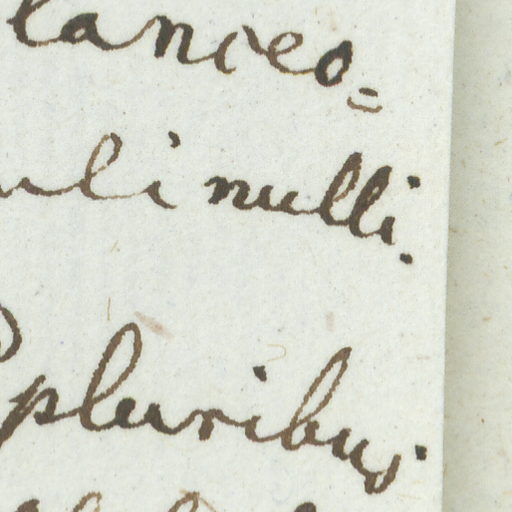 lanceo=
uli nulli.
pluribus